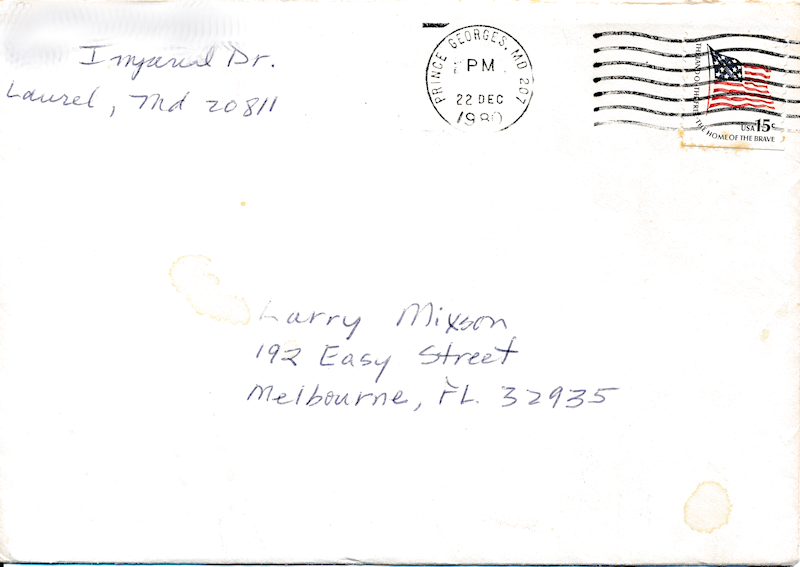 Imperial Dr.
Laurel, Md 20811
PRINCE GEORGES, MD 207
PM
22 DEC
1980
THE LAND OF THE FREE THE HOME OF THE BRAVE
USA 15c
Larry Mixson
192 Easy Street
Melbourne, FL. 32935